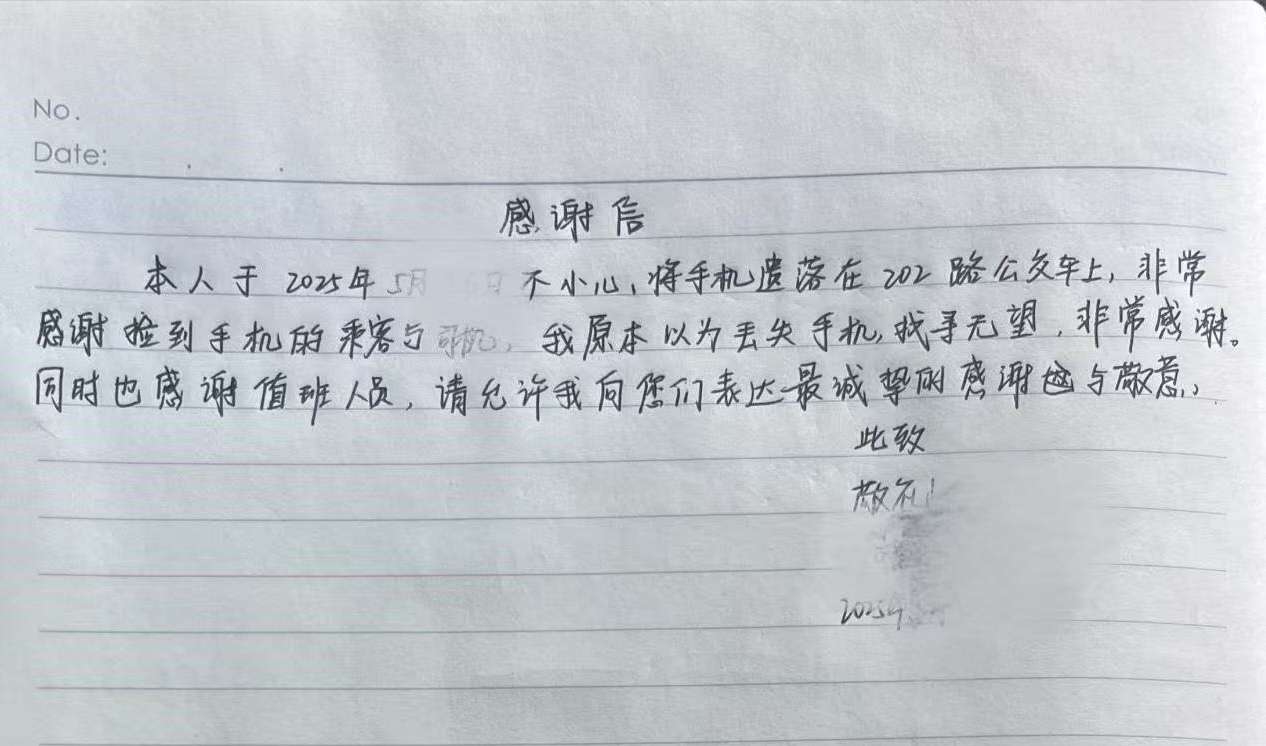 No.
Date: . .
感谢信
本人于 2025年 5月 日不小心,将手机遗落在 202 路公交车上,非常
感谢捡到手机的乘客与司机,我原本以为丢失手机,找寻无望,非常感谢。
同时也感谢值班人员,请允许我向您们表达最诚挚的感谢与敬意,
此致
敬礼
2025年